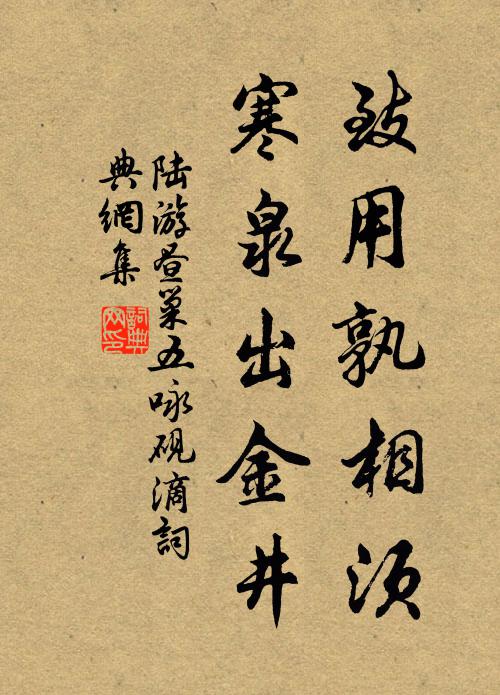 致用孰相须
寒泉出金井
陆游昼巢五咏砚滴詞
典網集
詞典
网印